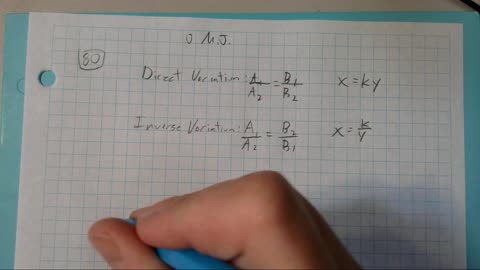 J.M.J.
80
Direct Variation: A₁/A₂ = B₁/B₂ x = ky
Inverse Variation: A₁/A₂ = B₂/B₁ x = k/y